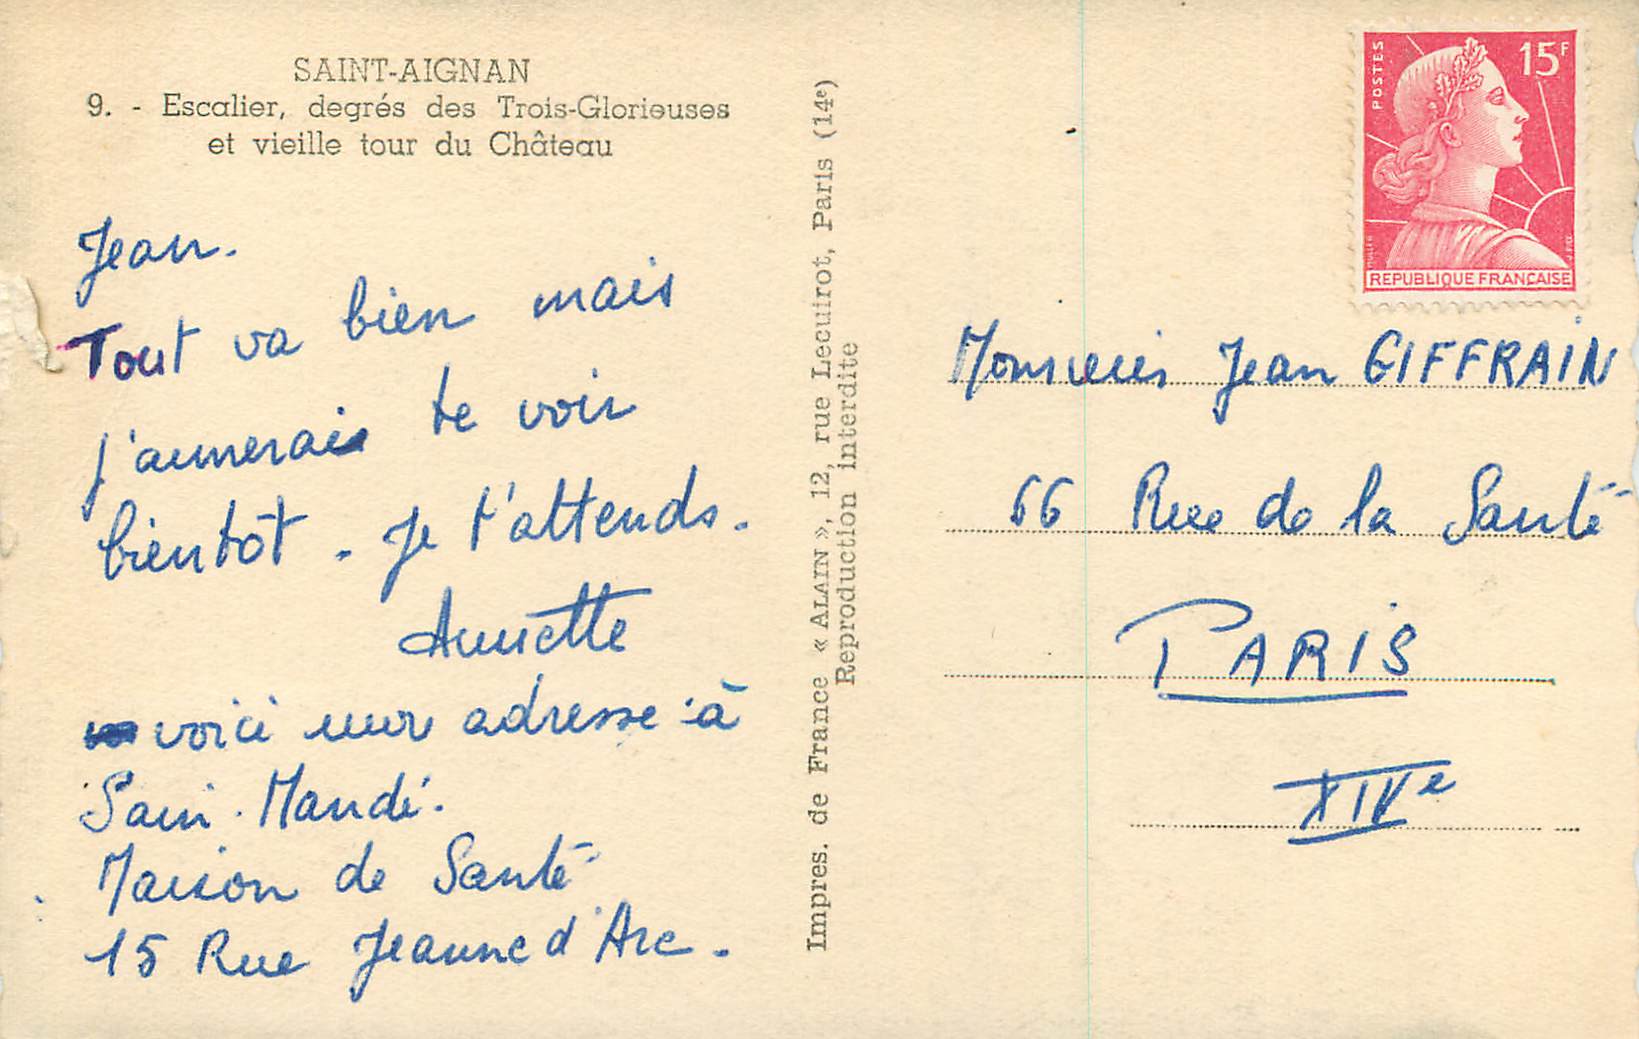 SAINT-AIGNAN
9. - Escalier, degrés des Trois-Glorieuses
et vieille tour du Château
Jean.
Tout va bien mais
j'aimerais te voir
bientôt. Je t'attends.
Annette
voici mon adresse à
Sain. Mandé.
Maison de Santé
15 Rue Jeanne d'Arc.
Impres. de France « ALAIN », 12, rue Lecuirot, Paris (14e)
Reproduction interdite
POSTES
15F
MULLER
REPUBLIQUE FRANÇAISE
Monsieur Jean GIFFRAIN
66 Rue de la Santé
PARIS
XIVe